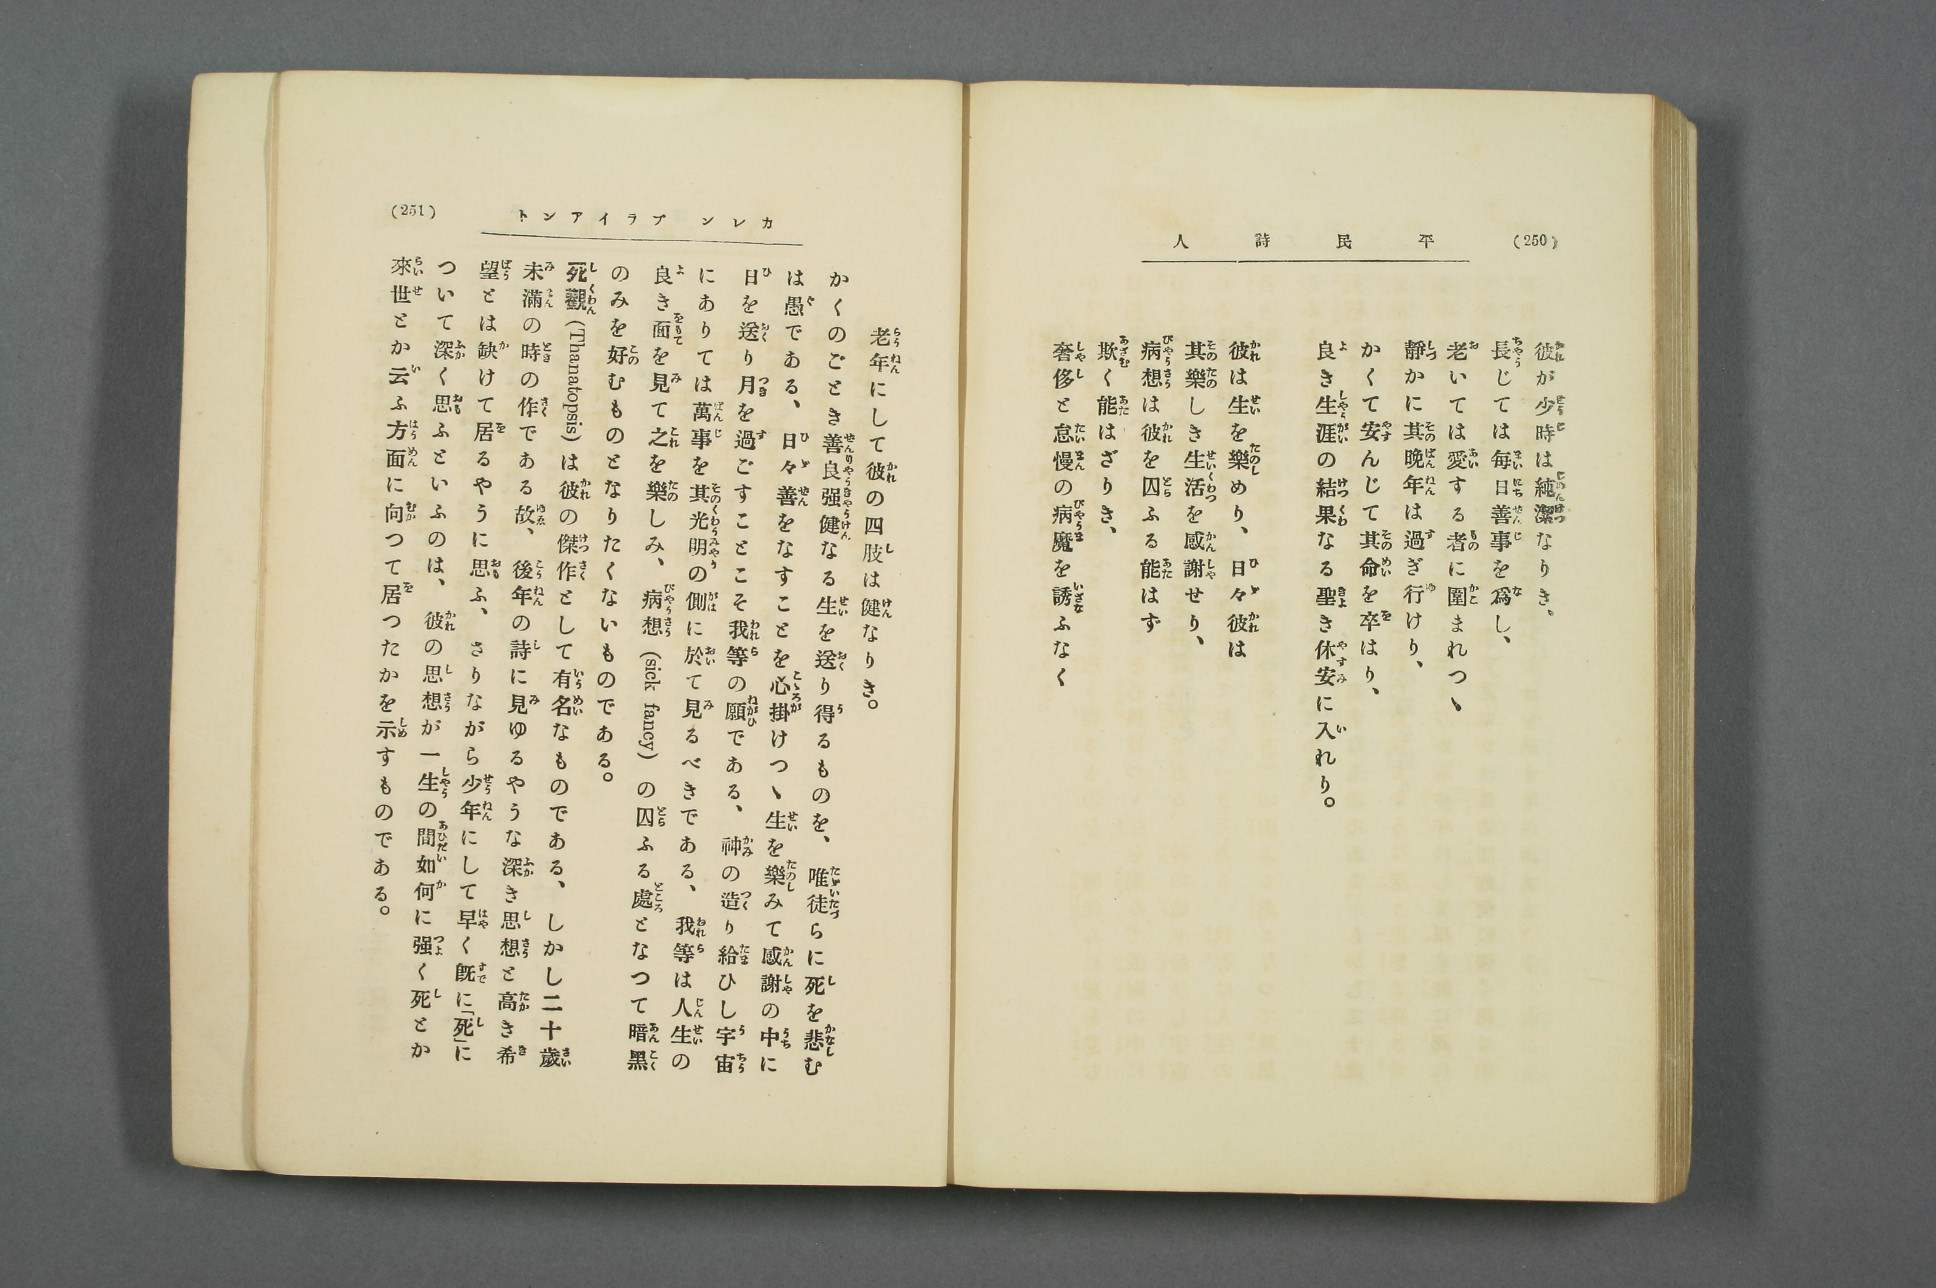 (250)
平民詩人
彼が少時は純潔なりき、
長じては毎日善事を爲し、
老いては愛する者に圍まれつヽ
靜かに其晩年は過ぎ行けり、
かくて安んじて其命を卒はり、
良き生涯の結果なる聖き休安に入れり。
彼は生を樂めり、日々彼は
其樂しき生活を感謝せり、
病想は彼を囚ふる能はず
欺く能はざりき、
奢侈と怠慢の病魔を誘ふなく
(251)
カレン ブライアント
老年にして彼の四肢は健なりき。
かくのごとき善良强健なる生を送り得るものを、唯徒らに死を悲む
は愚である、日々善をなすことを心掛けつヽ生を樂みて感謝の中に
日を送り月を過ごすことこそ我等の願である、神の造り給ひし宇宙
にありては萬事を其光明の側に於て見るべきである、我等は人生の
良き面を見て之を樂しみ、病想(sick fancy)の囚ふる處となつて暗黑
のみを好むものとなりたくないものである。
死觀(Thanatopsis)は彼の傑作として有名なものである、しかし二十歲
未滿の時の作である故、後年の詩に見ゆるやうな深き思想と高き希
望とは缺けて居るやうに思ふ、さりながら少年にして早く旣に「死」に
ついて深く思ふといふのは、彼の思想が一生の間如何に强く死とか
來世とか云ふ方面に向つて居つたかを示すものである。